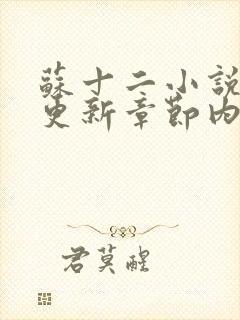 蘇十二小說
更新章節內
君莫醒